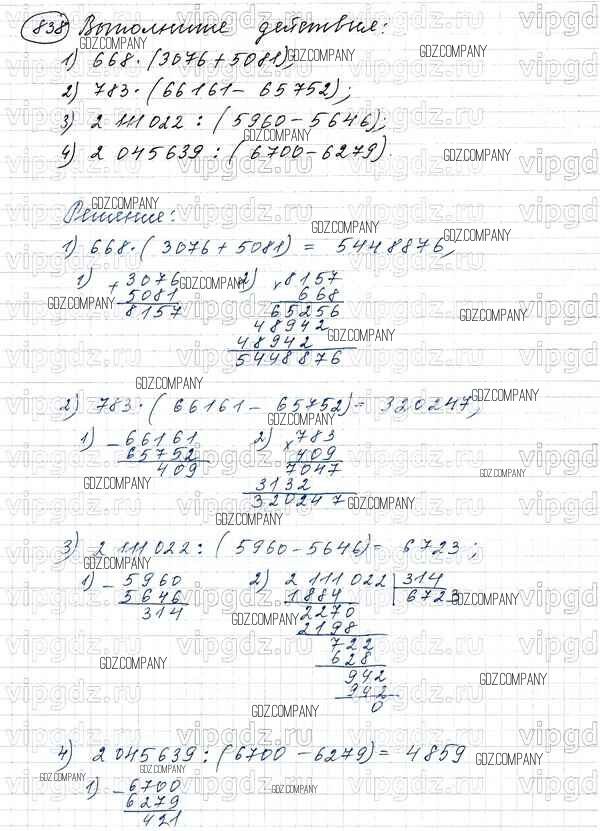 838 Выполните действия:
1) 668·(3076+5081);
2) 783·(66161-65752);
3) 2 111 022 : (5960-5646);
4) 2 045 639 : (6700-6279).
Решение:
1) 668·(3076+5081) = 5448876;
1) + 3076 2) × 8157
5081 668
8157 65256
48942
48942
5448876
2) 783·(66161-65752) = 320247;
1) - 66161 2) × 783
65752 409
409 7047
3132
320247
3) 2 111 022 : (5960-5646) = 6723;
1) - 5960 2) 2 111 022 | 314
5646 1884 6723
314 2270
2198
722
628
942
942
0
4) 2 045 639 : (6700-6279) = 4859
1) - 6700
6279
421
GDZ.COMPANY
vipgdz.ru